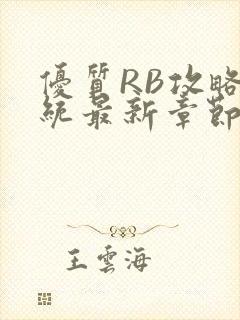 優質RB攻略
統最新章節
王雲海